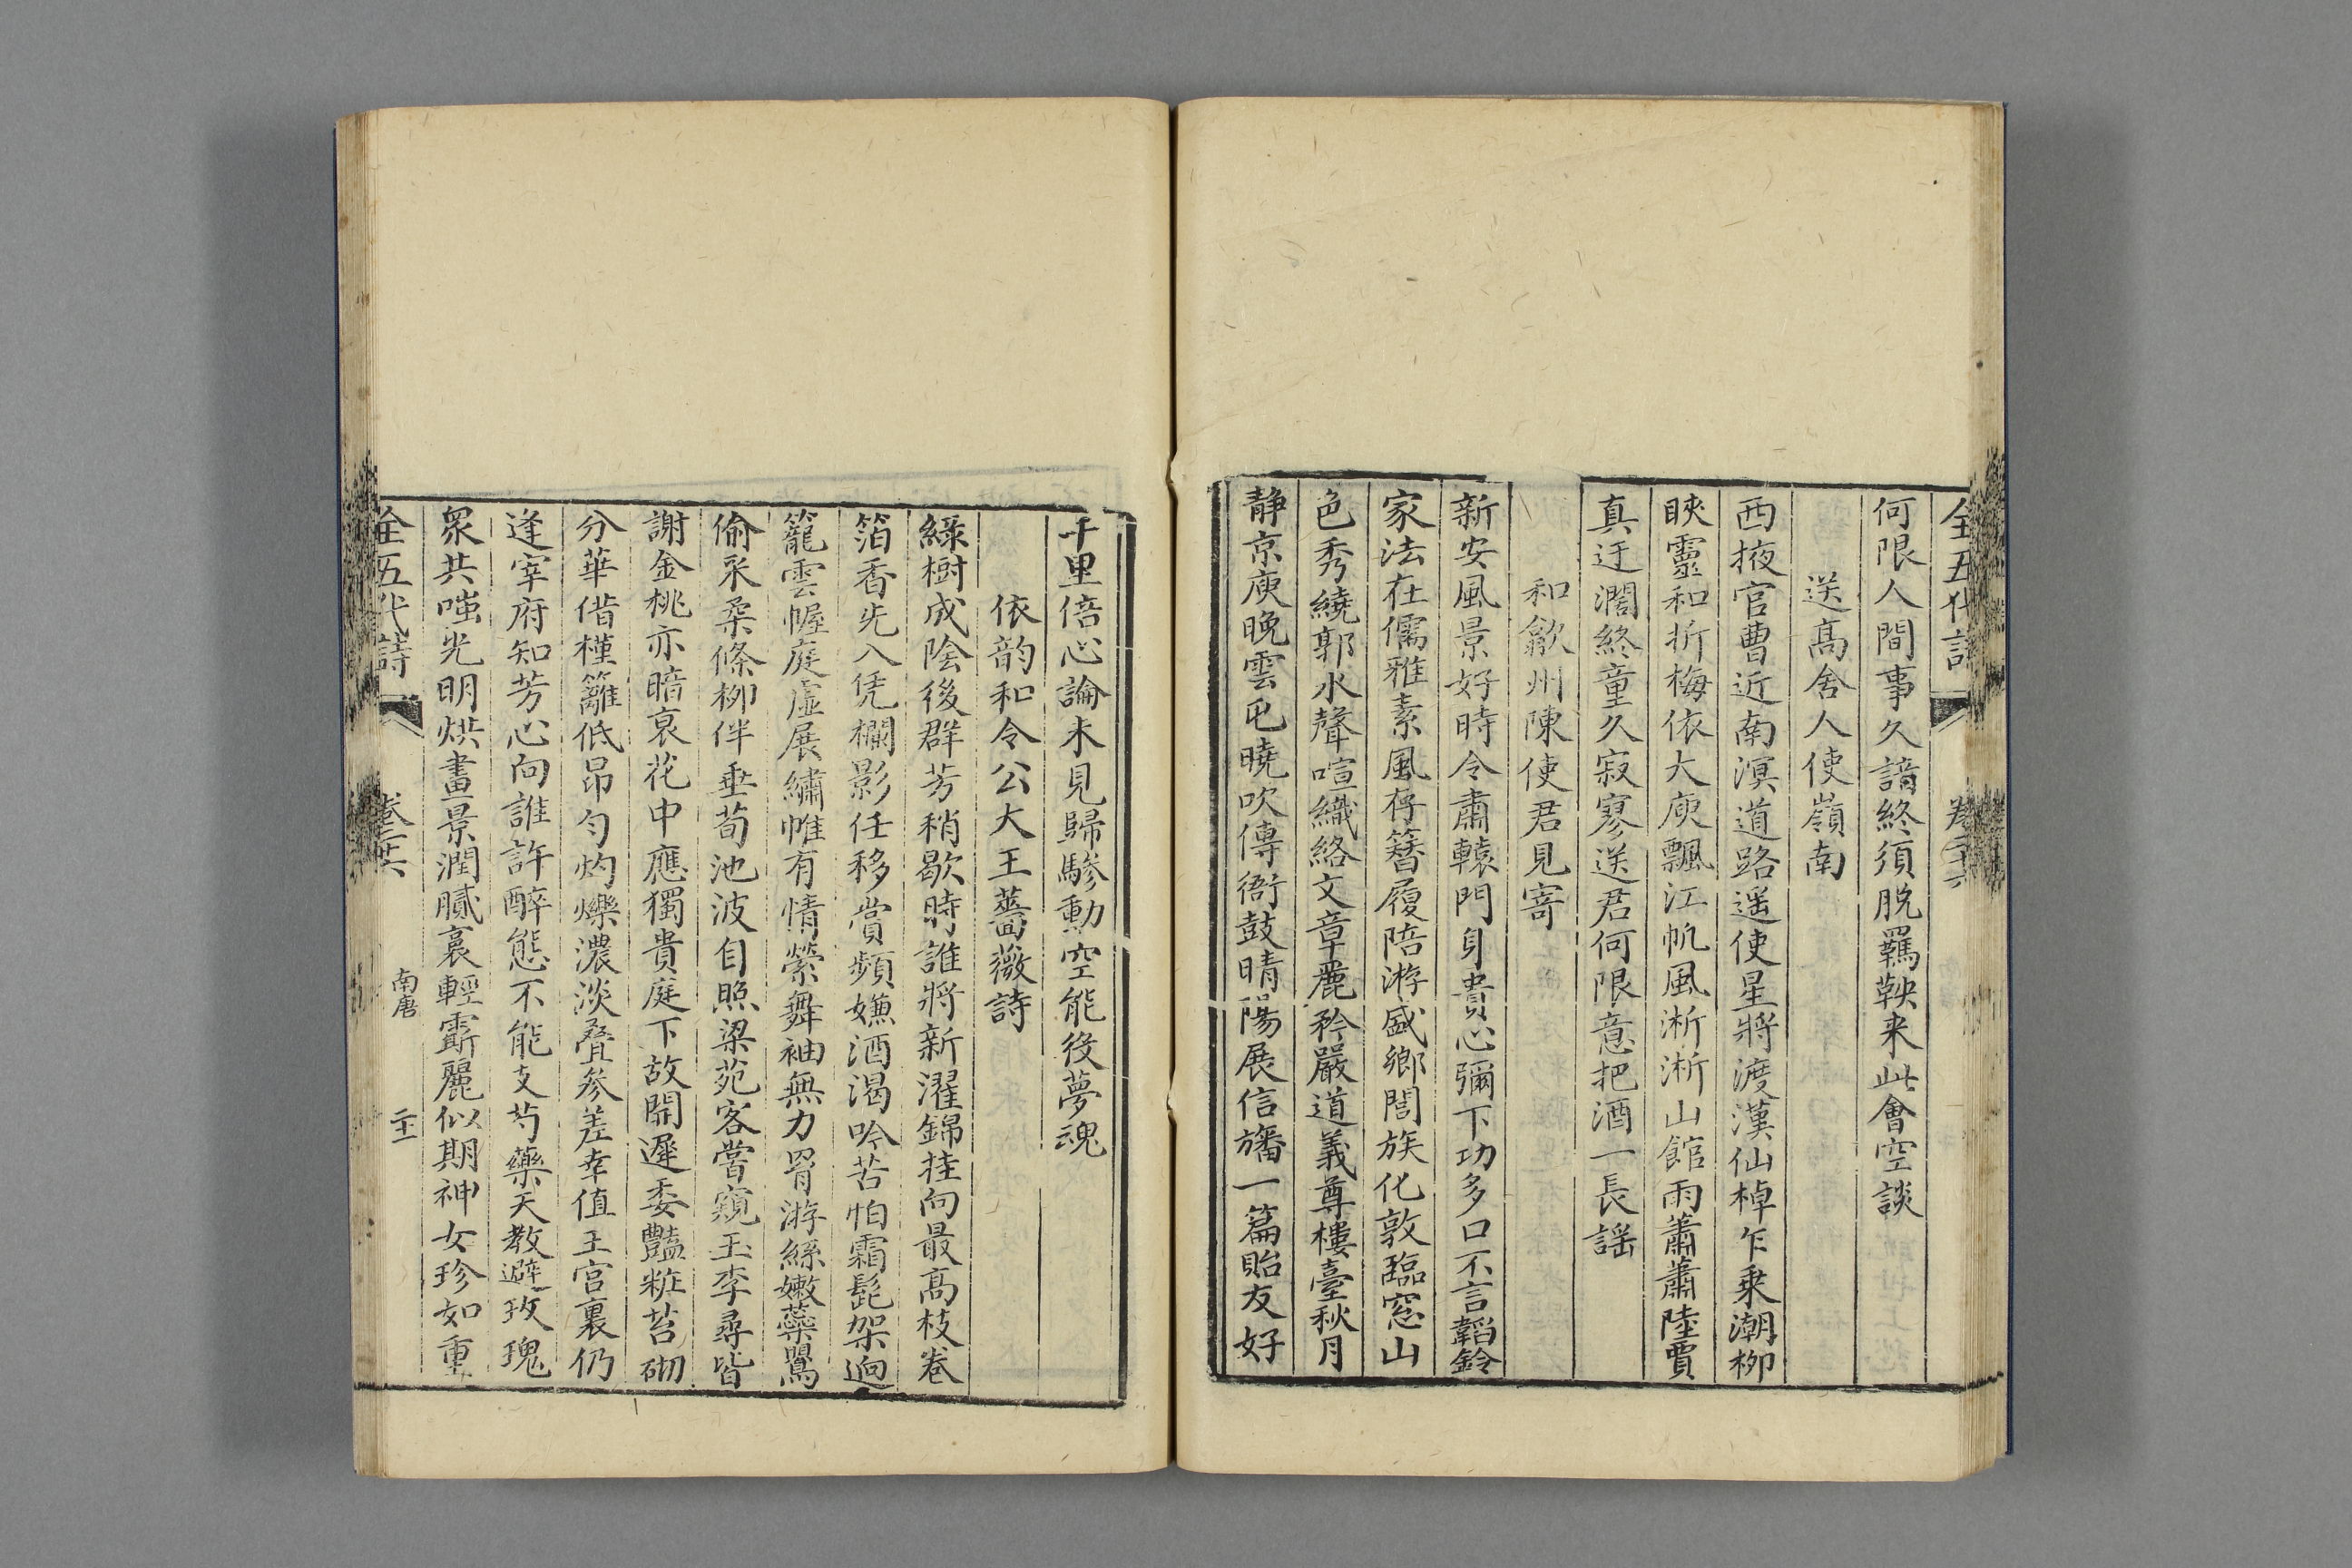 全五代詩 卷二十六
何限人間事久諳終須脫羈鞅来此會空談
送高舍人使嶺南
西掖官曹近南溟道路遥使星將渡漢仙棹乍乗潮栁
映靈和折梅依大庾飄江帆風淅淅山館雨蕭蕭陸賈
真迂濶終童久寂寥送君何限意把酒一長謡
和歙州陳使君見寄
新安風景好時令肅轅門身貴心彌下功多口不言韜鈐
家法在儒雅素風存簪履陪游盛鄉閭族化敦臨窓山
色秀繞郭水聲喧織絡文章麗矜嚴道義尊樓臺秋月
静京庾晚雲屯曉吹傳衙鼓晴陽展信旛一篇貽友好
千里倍心論未見歸驂動空能役夢魂
依韵和令公大王薔薇詩
綠樹成陰後群芳稍歇時誰將新濯錦挂向最高枝卷
箔香先入凭欄影任移賞頻嫌酒渴吟苦怕霜髭架逈
籠雲幄庭虚展繡帷有情縈舞袖無力罥游絲嫩蘂鸎
偷采柔條栁伴垂荀池波自照梁苑客嘗窺玉李尋皆
謝金桃亦暗衰花中應獨貴庭下故開遲委豔粧苔砌
分華借槿籬低昂匀灼爍濃淡叠參差幸值王宮裏仍
逢宰府知芳心向誰許醉態不能支芍藥天教避玫瑰
衆共嗤光明烘晝景潤膩裛輕霢麗似期神女珍如重
全五代詩 卷二十六 南唐 二十一